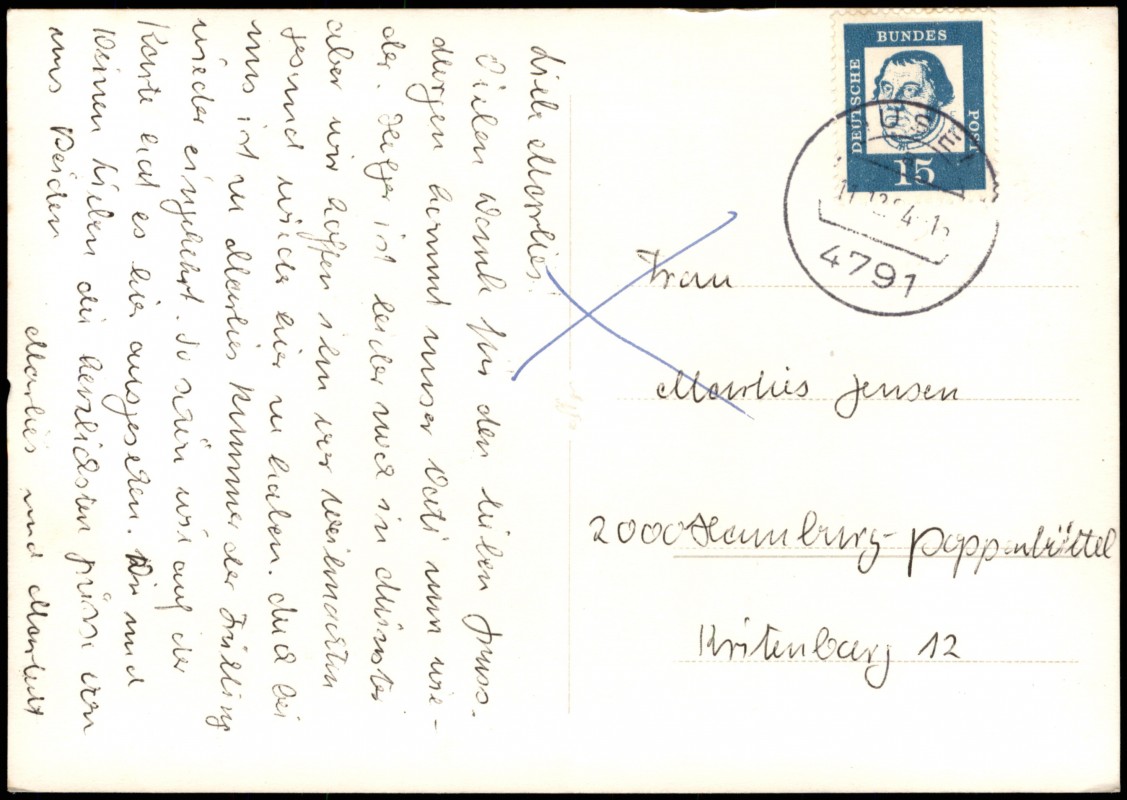 Liebe Marlies.
Vielen Dank für den lieben Gruss.
Morgen kommt unser Vati nun wie-
der. Holger ist leider noch in Münster
aber wir hoffen ihn vor Weihnachten
gesund wieder hier zu haben. Auch bei
uns ist zu Marlies Kummer der Frühling
wieder eingekehrt. So schön wie auf der
Karte hat es hier ausgesehen. Dir und
Deinen Lieben die herzlichsten Grüsse von
uns Beiden
Marlies und
DEUTSCHE BUNDES POST
15
4791
Frau
Marlies Jensen
2000 Hamburg-Poppenbüttel
12